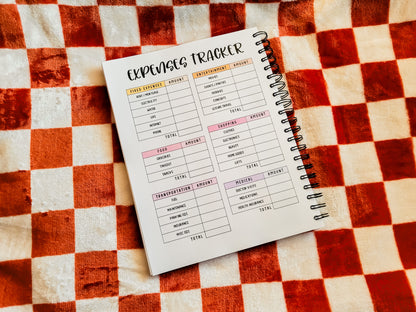 EXPENSES TRACKER
FIXED EXPENSES AMOUNT
RENT / MORTGAGE
ELECTRICITY
WATER
GAS
INTERNET
PHONE
TOTAL
FOOD AMOUNT
GROCERIES
TAKEOUT
SNACKS
TOTAL
TRANSPORTATION AMOUNT
FUEL
MAINTENANCE
PARKING FEES
INSURANCE
MISC FEES
TOTAL
ENTERTAINMENT AMOUNT
MOVIES
EVENTS / PARTIES
HOBBIES
CONCERTS
ALCOHOL/DRINKS
TOTAL
SHOPPING AMOUNT
CLOTHES
ELECTRONICS
BEAUTY
HOME GOODS
GIFTS
TOTAL
MEDICAL AMOUNT
DOCTOR VISITS
MEDICATIONS
HEALTH INSURANCE
TOTAL